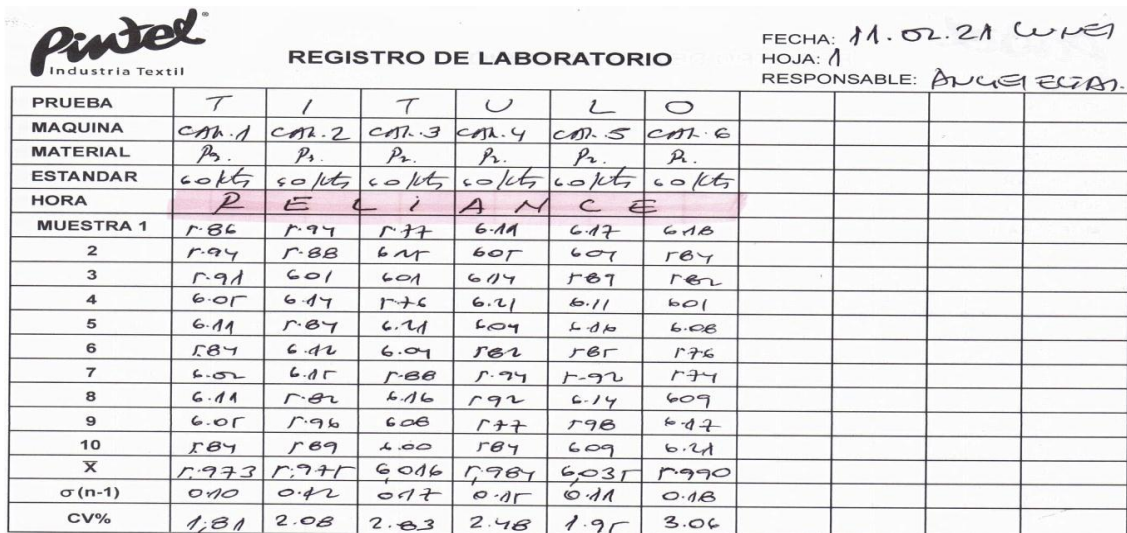 Pintex
Industria Textil
REGISTRO DE LABORATORIO
FECHA: 11.02.21 LUNES
HOJA: 1
RESPONSABLE: ANGEL ELIAS.
PRUEBA T I T U L O
MAQUINA CAR.1 CAR.2 CAR.3 CAR.4 CAR.5 CAR.6
MATERIAL
ESTANDAR 60/kts 60/kts 60/kts 60/kts 60/kts 60/kts
HORA RELIANCE
MUESTRA 1 5.86 5.94 5.77 6.11 6.17 6.18
2 5.94 5.88 6.25 605 604 584
3 5.91 601 601 6.14 589 582
4 6.05 6.14 5.76 6.21 6.11 601
5 6.11 5.84 6.21 604 6.16 6.08
6 5.84 6.12 6.04 582 585 576
7 6.02 6.15 5.88 5.94 5.92 574
8 6.11 5.82 6.16 592 6.14 609
9 6.05 5.96 608 577 598 6.17
10 5.84 589 6.00 584 609 6.21
X̅ 5.973 5.975 6,016 5,984 6,035 5.990
σ (n-1) 0.10 0.12 0.17 0.15 0.11 0.18
CV% 1,81 2.08 2.83 2.48 1.95 3.06